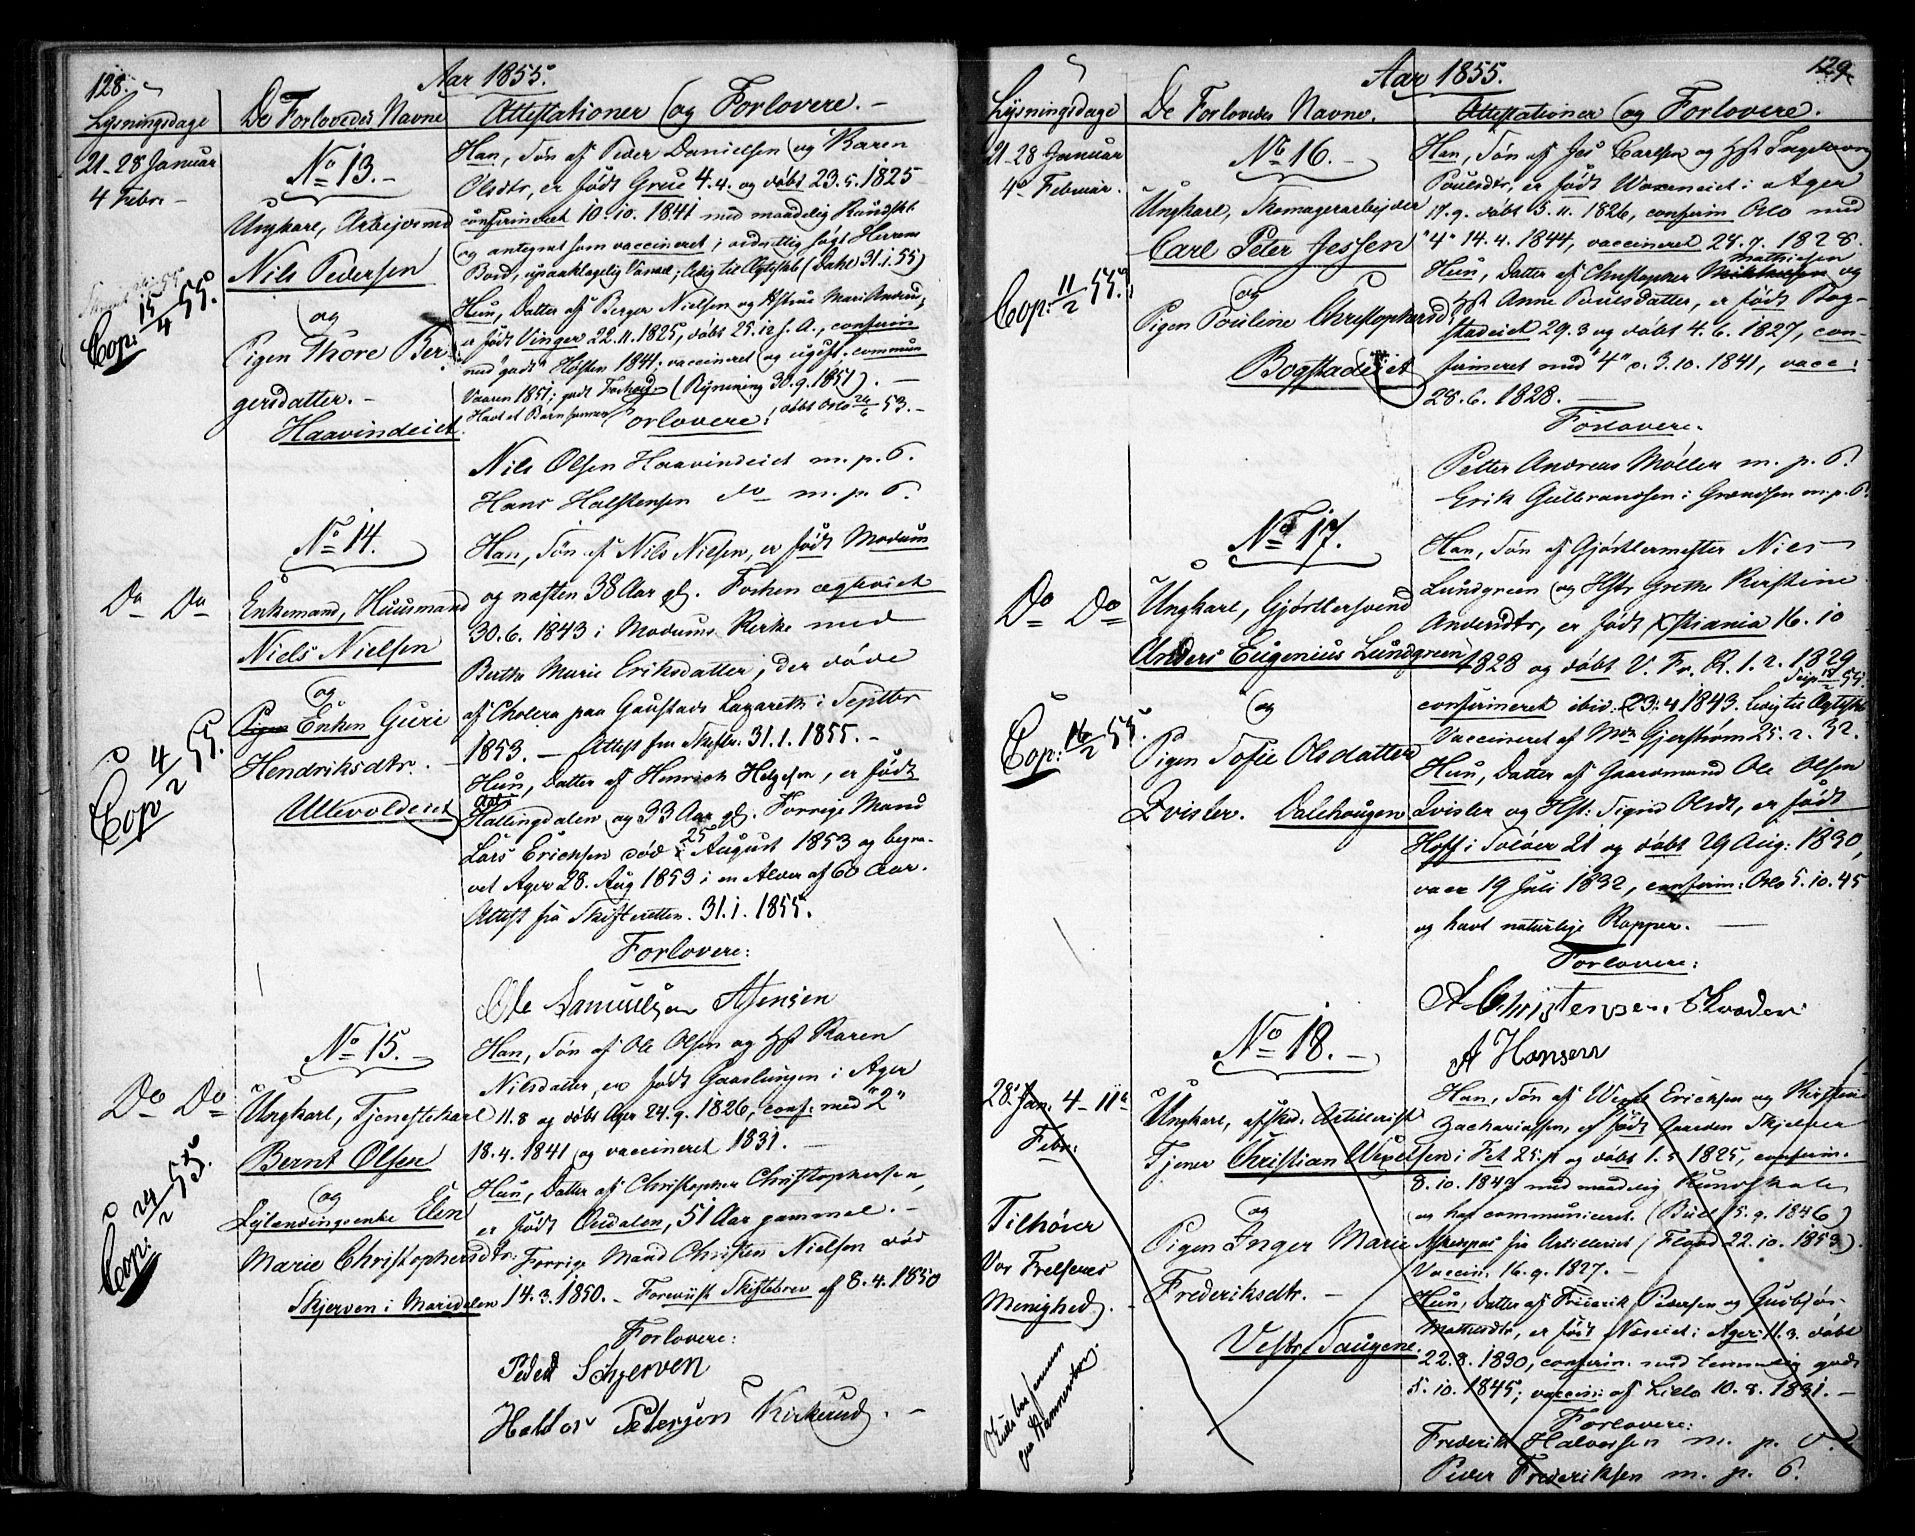 128.
Aar 1855.
Lysningsdage
De Forlovedes Navne
Attestationer og Forlovere. -
21-28 Januar
4 Febr. -
No 13. -
Ungkarl, Arbeidsmd
Nils Pedersen
og
Pigen Thore Ber-
gersdatter. -
Haavindeiet.
Cop: 15/4 55.
Han, Søn af Peder Danielsen og Karen
Olsdtr, er født Grue 4.4. og døbt 23.5.1825
confirmeret 10.10.1841 med maadelig Kundskb
og antegnet som vaccineret; ordentlig søgt Herrens
Bord, upaaklagelig Vandel, ledig til Ægteskb (Dahl 31.1.55)
Hun, Datter af Berger Nielsen og Mari
er født Vinger 22.11.1825, døbt 25.12 s. A., confirm
med "godt" Høsten 1841; vaccineret og commun
Vaaren 1851; godt Forhold. (Rynning 30.9.1851). -
Havt et Barn sammen døbt Oslo 24/6 53. -
Forlovere:
Nils Olsen Haavindeiet m. p. P.
Hans Halstensen do m. p. P.
No 14.
Do Do
Enkemand, Huusmand
Niels Nielsen
og
Pigen Enken Guri
Hendriksdtr.
Ullevoldeiet
Cop 4/2 55.
Han, Søn af Nils Nielsen, er født Modum
og næsten 38 Aar gl. Forhen ægteviet
30.6.1843 i Modums Kirke med
Berthe Marie Eriksdatter, der døde
af Cholera paa Gaustads Lazareth i Septbr
1853. - Attest fra Skiftr: 31.1.1855. -
Hun, Datter af Henrich Helgesen, er født
Aal
Hallingdalen og 33 Aar gl. Forrige Mand
Lars Ericksen død 25 August 1853 og begra-
vet Ager 28. Aug 1853 i en Alder af 60 Aar.
Attest fra Skifteretten. 31.1.1855.
Forlovere:
Ole Samuelsen
No 15. -
Do Do
Ungkarl, Tjenestekarl
Bernt Olsen
og
Leilændingsenke Elen
Marie Christophersdtr:
Skjerven i Maridalen
Cop: 24/2 55.
Han, Søn af Ole Olsen og Hst Karen
Nilsdatter, er født Gaaslungen i Ager
11.8 og døbt Ager 24.9.1826, conf: med "2"
18.4.1841 og vaccineret 1831. -
Hun, Datter af Christopher Christophersen,
er født Ourdalen, 51 Aar gammel. -
Forrige Mand Christen Nielsen død
14.3.1850. - Foreviist Skiftebrev af 8.4.1850
Forlovere:
Peder Schjerven
Haldor Petersen Kirkerud. -
129.
Aar 1855.
Lysningsdage
De Forlovedes Navne.
Attestationer og Forlovere.
21-28 Januar
4de Februar.
No 16. -
Ungkarl, Skomagerarbejder
Carl Peter Jessen
og
Pigen Pouline Christophersd:
Bogstadeiet
Cop: 11/2 55.
Han, Søn af Jes Carlsen og Hst Ingeborg
Poulsdtr, er født Woxeneiet i Ager
17.9. døbt 5.11.1826, confirm Oslo med
"4" 14.4.1844, vaccineret 24.7.1828.
Mathiesen
Hun, Datter af Christopher og
Hst Anne Poulsdatter, er født Bog-
stadeiet 29.3 og døbt 4.6.1827, con-
firmeret med "4" 3.10.1841, vacc:
28.6.1828. -
Forlovere.
Petter Andreas Møller m. p. P.
Erik Gulbrandsen i Grændsen m. p. P.
No 17.
Do Do
Ungkarl, Gjørtlersvend
Anders Eugenius Lundgreen
og
Pigen Sofie Olsdatter
Qvisler. Dalehougen
Cop: 16/2 55.
Han, Søn af Gjørtlermester Niels
Lundgreen og Hst Grethe Kirstine
Andersdtr, er født Xstiania 16.10
1828 og døbt V. Fr. K. 1.2.1829
confirmeret ibid. 23.4 1843. ledig til Ægteskb
Vaccineret af Gjerstrøm 25.2.32.
Hun, Datter af Gaardmand Ole Olsen
Qvisler og Hst: Sigrid Olsdt, er født
Hoff i Soløer 21 og døbt 29 Aug: 1830,
vacc 19 Juli 1832, confirm: Oslo 5.10.45
og havt naturlige Kopper. -
Forlovere:
A Christensen.
A Hansen
No 18. -
28. Jan. 4-11te
Febr.
Tilhører
Vor Frelseres
Menighed.
Ungkarl, afsked. Artillerist
Tjener Christian Wexelsen
og
Pigen Inger Marie
Frederiksdtr. -
Vestr. Taugene.
Han, Søn af Ericksen og Kirstine
Zachariassen, er født Gaarden Skjelver
i Fet 25. og døbt 1.5 1825, confirm.
8.10.1843 med maadelig Kundskab
og har communiceret. (Bull 15.9.1846)
Afskedspas fra Artilleriet 22.10.1853).
Vaccin. 16.9.1827. -
Hun, Datter af Friderik Pedersen og Gudbjør
Mathisdtr, er født Næseiet i Ager 11.3. døbt
22.8.1830, confirm. med temmelig godt
5.10.1845; vaccin: af Lielo 10.8.1831. -
Forlovere:
Frederik Halvorsen m. p. P.
Peder Frederiksen m. p. P.